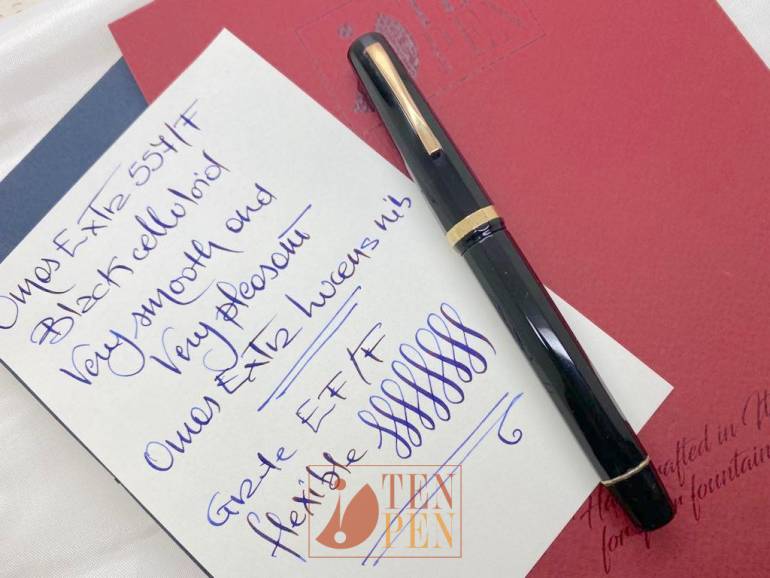 Omas Extra 557/F
Black celluloid
Very smooth and
Very pleasant
Omas Extra lucens nib
Grade EF/F
flexible
TEN
PEN
PEN
crafted in
for fountain